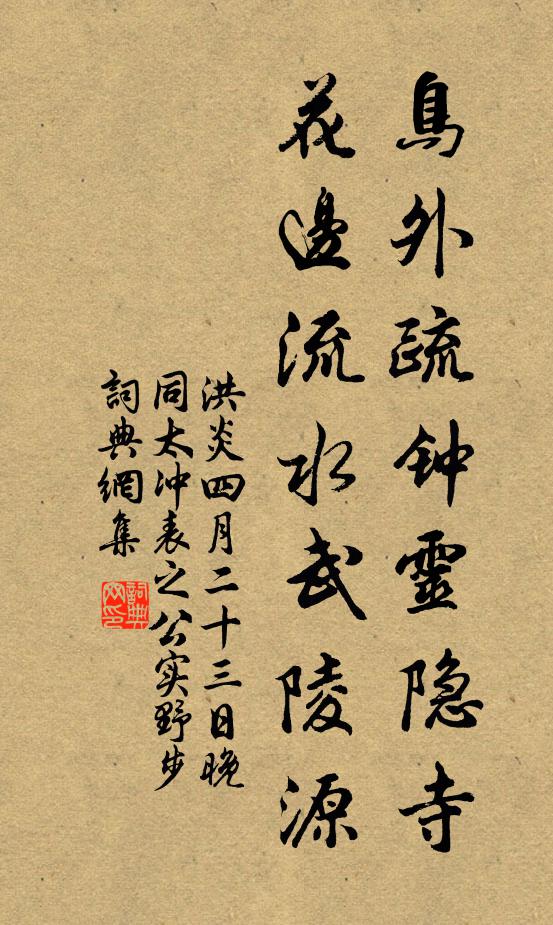 鳥外疏钟靈隐寺
花邊流水武陵源
洪炎四月二十三日晚
同太冲表之公实野步
詞典網集
詞典
网印